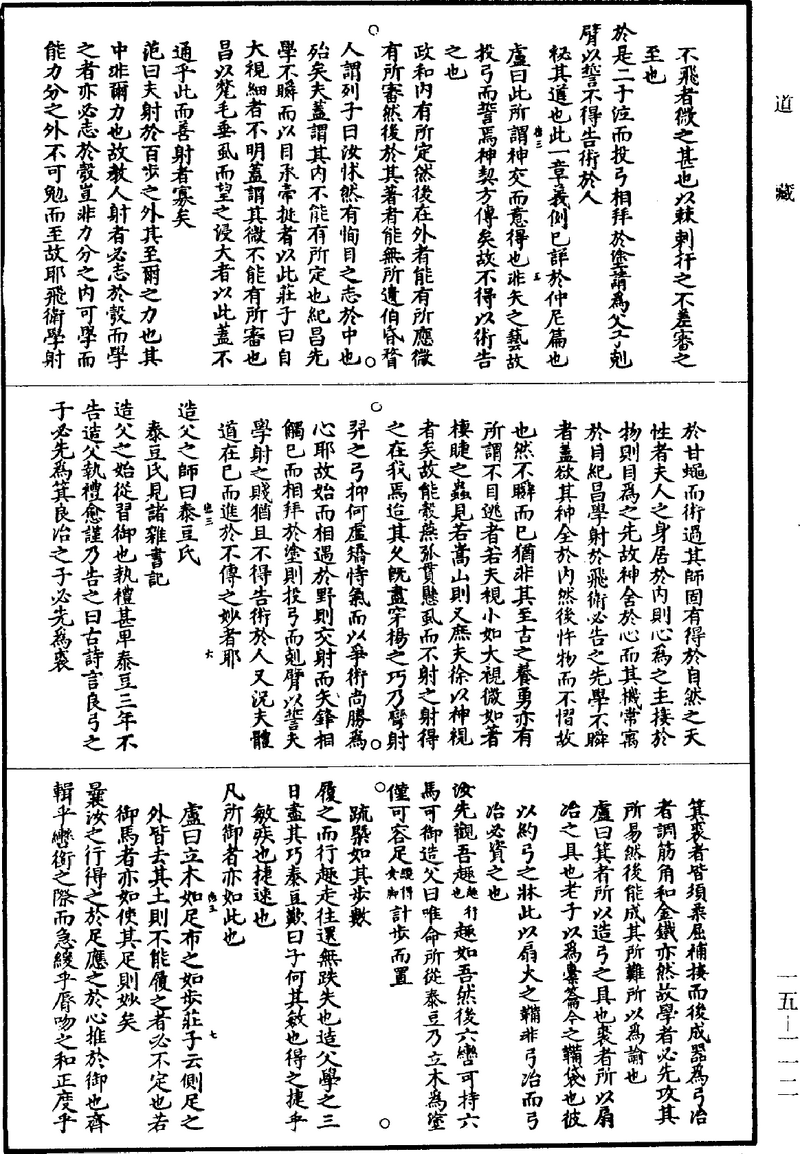 道藏
不飛者微之甚也以棘刺扞之不差審之
至也
於是二子泣而投弓相拜於塗請為父子剋
臂以誓不得告術於人
秘其道也此一章義例已詳於仲尼篇也
盧曰此所謂神交而意得也非矢之藝故
投弓而誓焉神契方傳矣故不得以術告
之也
政和內有所定然後在外者能有所應微
有所審然後於其著者能無所遺伯昏瞀
人謂列子曰汝怵然有恂目之志於中也
殆矣夫蓋謂其內不能有所定也紀昌先
學不瞬而以目承牽挺者以此莊子曰自
大視細者不明蓋謂其微不能有所審也
昌以氂毛垂虱而望之浸大者以此蓋不
通乎此而善射者寡矣
范曰夫射於百步之外其至爾之力也其
中非爾力也故教人射者必志於彀而學
之者亦必志於彀豈非力分之內可學而
能力分之外不可勉而至故耶飛衛學射
於甘蠅而術過其師固有得於自然之天
性者夫人之身居於內則心為之主接於
物則目為之先故神舍於心而其機常寓
於目紀昌學射於飛衛必告之先學不瞬
者蓋欲其神全於內然後忤物而不慴故
也然不瞬而已猶非其至古之養勇亦有
所謂不目逃者若夫視小如大視微如著
棲睫之蟲見若嵩山則又庶夫徐以神視
者矣故能彀燕弧貫懸虱而不射之射得
之在我焉迨其久既盡穿楊之巧乃彎射
羿之弓抑何虛矯恃氣而以爭術尚勝為
心耶故始而相遇於野則交射而矢鋒相
觸已而相拜於塗則投弓而剋臂以誓夫
學射之賤猶且不得告術於人又況夫體
道在己而進於不傳之妙者耶
造父之師曰泰豆氏
泰豆氏見諸雜書記
造父之始從習御也執禮甚卑泰豆三年不
告造父執禮愈謹乃告之曰古詩言良弓之
子必先為箕良冶之子必先為裘
箕裘者皆須柔屈補接而後成器為弓冶
者調筋角和金鐵亦然故學者必先攻其
所易然後能成其所難所以為諭也
盧曰箕者所以造弓之具也裘者所以扇
冶之具也老子以為橐籥今之鞴袋也彼
以約弓之牀此以扇火之鞴非弓冶而弓
冶必資之也
汝先觀吾趣趣行也趣如吾然後六轡可持六
馬可御造父曰唯命所從泰豆乃立木為塗
僅可容足纔得安腳計步而置
疏㮣如其步數
履之而行趣走往還無跌失也造父學之三
日盡其巧泰豆歎曰子何其敏也得之捷乎
敏疾也捷速也
凡所御者亦如此也
盧曰立木如足布之如步莊子云側足之
外皆去其土則不能履之者必不定也若
御馬者亦如使其足則妙矣
曩汝之行得之於足應之於心推於御也齊
輯乎轡銜之際而急緩乎脣吻之和正度乎
一五-一一二